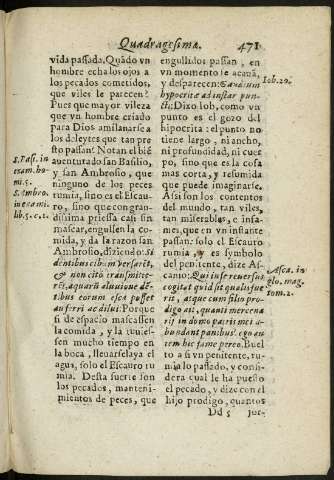 Quadragesima. 471
vida passada. Quãdo vn
hombre echa los ojos a
los pecados cometidos,
que viles le parecen?
Pues que mayor vileza
que vn hombre criado
para Dios amilanarse a
los deleytes que tan pre
sto passan? Notan el biē
auenturado san Basilio,
y san Ambrosio, que
ninguno de los peces
rumia, sino es el Escau-
ro, sino que con gran-
dissima priessa casi sin
mascar, engullen la co-
mida, y da la razon san
Ambrosio, diziẽdo: Si
dentibus cibũ inversarēt,
& non citò transmitte-
rẽt, aquarũ alluuione dē-
tibus eorum esca posset
auferri ac dilui: Porque
si de espacio mascassen
la comida, y la tuuies-
sen mucho tiempo en
la boca, lleuarselaya el
agua, solo el Escauro ru
mia. Desta suerte son
los pecados, manteni-
mientos de peces, que
S. Basi. in
exam. ho-
mi. 5.
S. Ambro.
in exami.
lib. 5. c. 1.
engullidos passan, en
vn momento se acauã,
y desparecen: Gaudium
hypocritæ ad instar pun-
cti: Dixo Iob, como vn
punto es el gozo del
hipocrita: el punto no
tiene largo, ni ancho,
ni profundidad, ni cuer
po, sino que es la cosa
mas corta, y resumida
que puede imaginarse.
Assi son los contentos
del mundo, tan viles,
tan miserables, e infa-
mes, que en vn instante
passan: solo el Escauro
rumia, y es symbolo
del penitente, dize As-
canio: Qui in se reuersus
cogitat quid sit qualis fue
rit, atque cum filio pro-
digo ait, quanti mercena
rij in domo patris mei a-
bundant panibus? ego au
tem hic fame pereo. Buel
to a si vn penitente, ru-
mia lo passado, y consi-
dera cual le ha puesto
el pecado, y dize con el
hijo prodigo, quantos
Iob. 20.
Asca. in
glo. mag.
tom. 2.
Dd 5 jor-